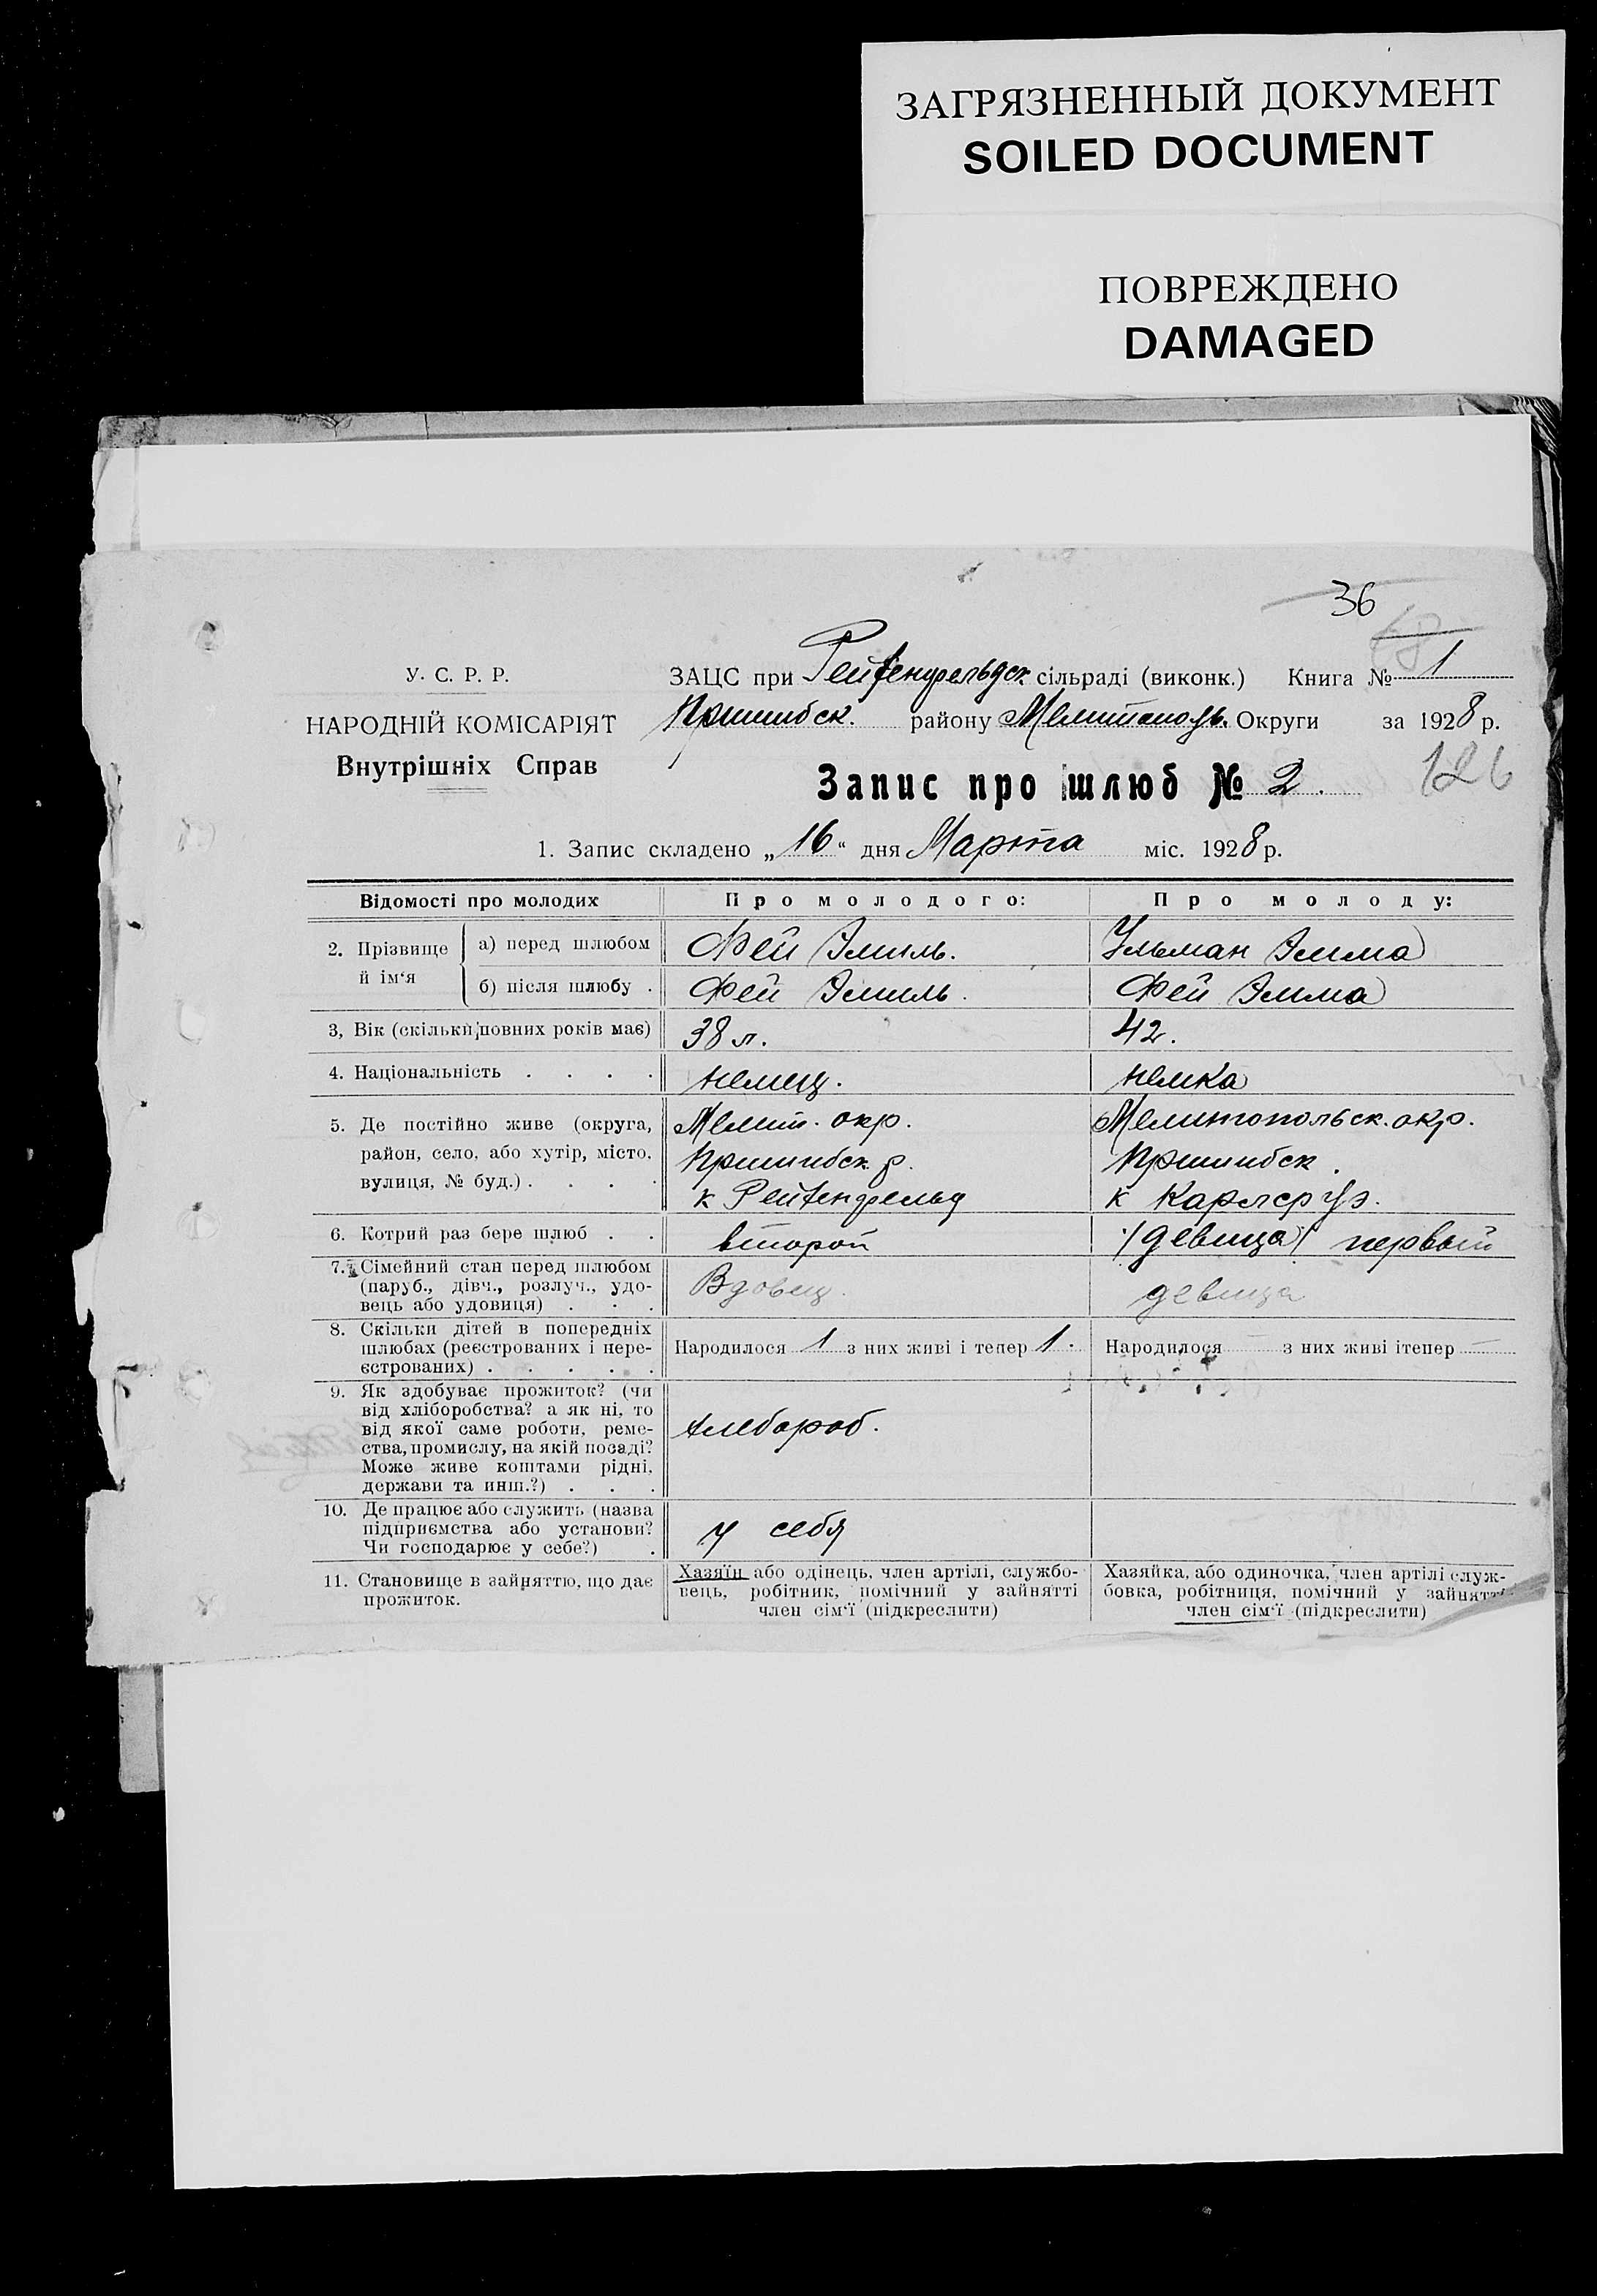 ЗАГРЯЗНЕННЫЙ ДОКУМЕНТ
SOILED DOCUMENT
ПОВРЕЖДЕНО
DAMAGED
36
У. С. Р. Р.
НАРОДНІЙ КОМІСАРІЯТ
Внутрішніх Справ
ЗАЦС при Рейхенфельдск сільраді (виконк.) Книга № 1
Пришибск. району Мелитополь. Округи за 1928 р.
126
Запис про шлюб № 2.
1. Запис складено „16“ дня Марта міс. 1928 р.
Відомості про молодих Про молодого: Про молоду:
2. Прізвище й ім‘я
а) перед шлюбом Фей Эмиль. Ульман Эмма
б) після шлюбу . Фей Эмиль. Фей Эмма
3, Вік (скільки повних років має) 38 л. 42.
4. Національність . . . . немец. немка
5. Де постійно живе (округа, Мелит. окр. Мелитопольск. окр.
район, село, або хутір, місто, Пришибск. р. Пришибск.
вулиця, № буд.) . . . . к Рейхенфельд к Карлсруэ.
6. Котрий раз бере шлюб . . второй /девица/ первый
7. Сімейний стан перед шлюбом Вдовец. девица
(паруб., дівч., розлуч., удо-
вець або удовиця) . . .
8. Скільки дітей в попередніх
шлюбах (реєстрованих і нере- Народилося 1 з них живі і тепер 1. Народилося — з них живі ітепер —
єстрованих) . . . . .
9. Як здобуває прожиток? (чи
від хліборобства? а як ні, то
від якої саме роботи, реме- хлебороб.
ства, промислу, на якій посаді?
Може живе коштами рідні,
держави та инш.?) . . .
10. Де працює або служить (назва
підприємства або установи? у себя
Чи господарює у себе?) .
11. Становище в зайняттю, що дає
прожиток.
Хазяїн або одінець, член артілі, службо-
вець, робітник, помічний у зайнятті
член сім‘ї (підкреслити)
Хазяйка, або одиночка, член артілі служ-
бовка, робітниця, помічний у зайнятті
член сім‘ї (підкреслити)